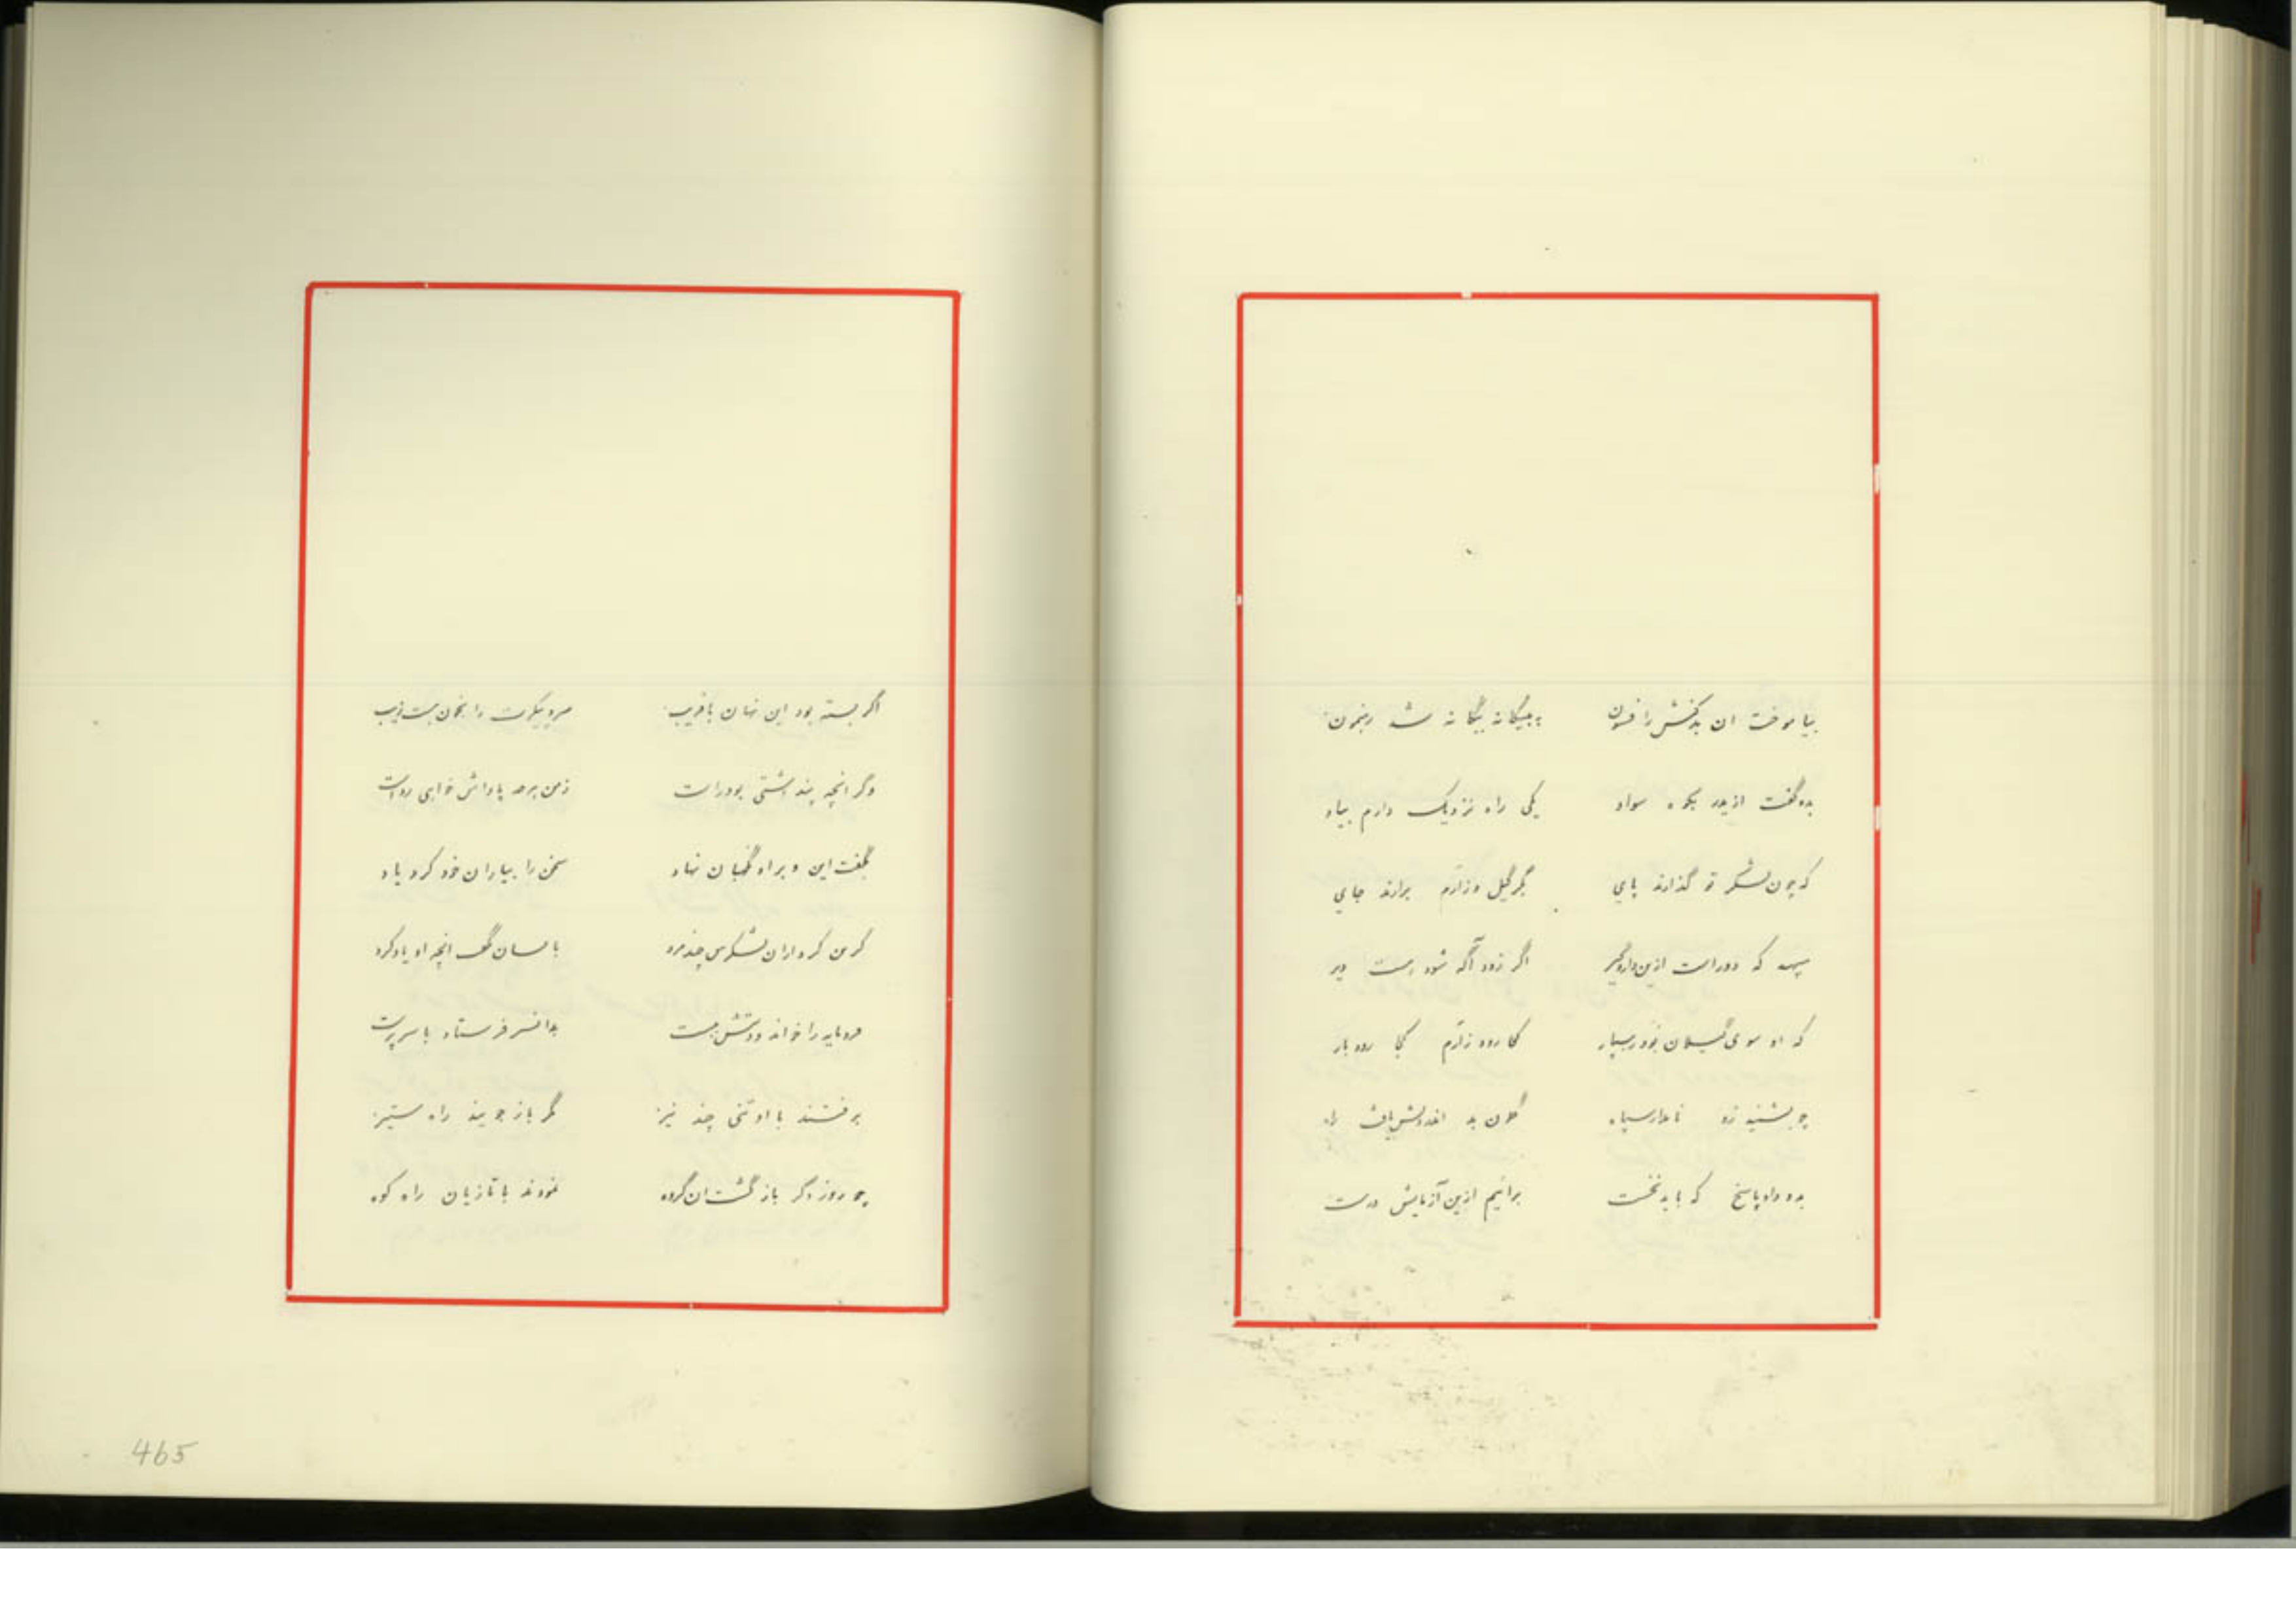 بیاموخت ان بدکنش را فسون به بیگانه بیگانه شد رهنمون
بدو گفت ازیدر بکوه سواد یکی راه نزدیک دارم بیاد
که چون لشکر تو گذارند پای بگرگیل وزارم برارند جای
سپهبد که دور است ازین داروگیر اگر زود آگه شود هست دیر
که او سوی گیلان بخود رسپار کا رود زارم کجا رودبار
چو بشنید زو نامدار سپاه کلون بد اندیش یافت راه
بدو داد پاسخ که باید نخست برانیم ازین آزمایش درست
اگر بسته بود این نهان با فریب را بخون است زیب
وگر انچه پنداشتی بود راست زمن هرچه پاداش خواهی رواست
بگفت این و بر او نگهبان نهاد سخن را بیاران خود کرد یاد
گزین کرد از ان لشکرش چند مرد بانسان که گفت انچه او یاد کرد
فرومایه را خواند و دستش ببست بدانسر فرستاد با سرپرست
برفتند با او تنی چند نیز مگر باز جویند راه ستیز
چو روز دگر بازگشت ان گروه نمودند با تازیان راه کوه
465